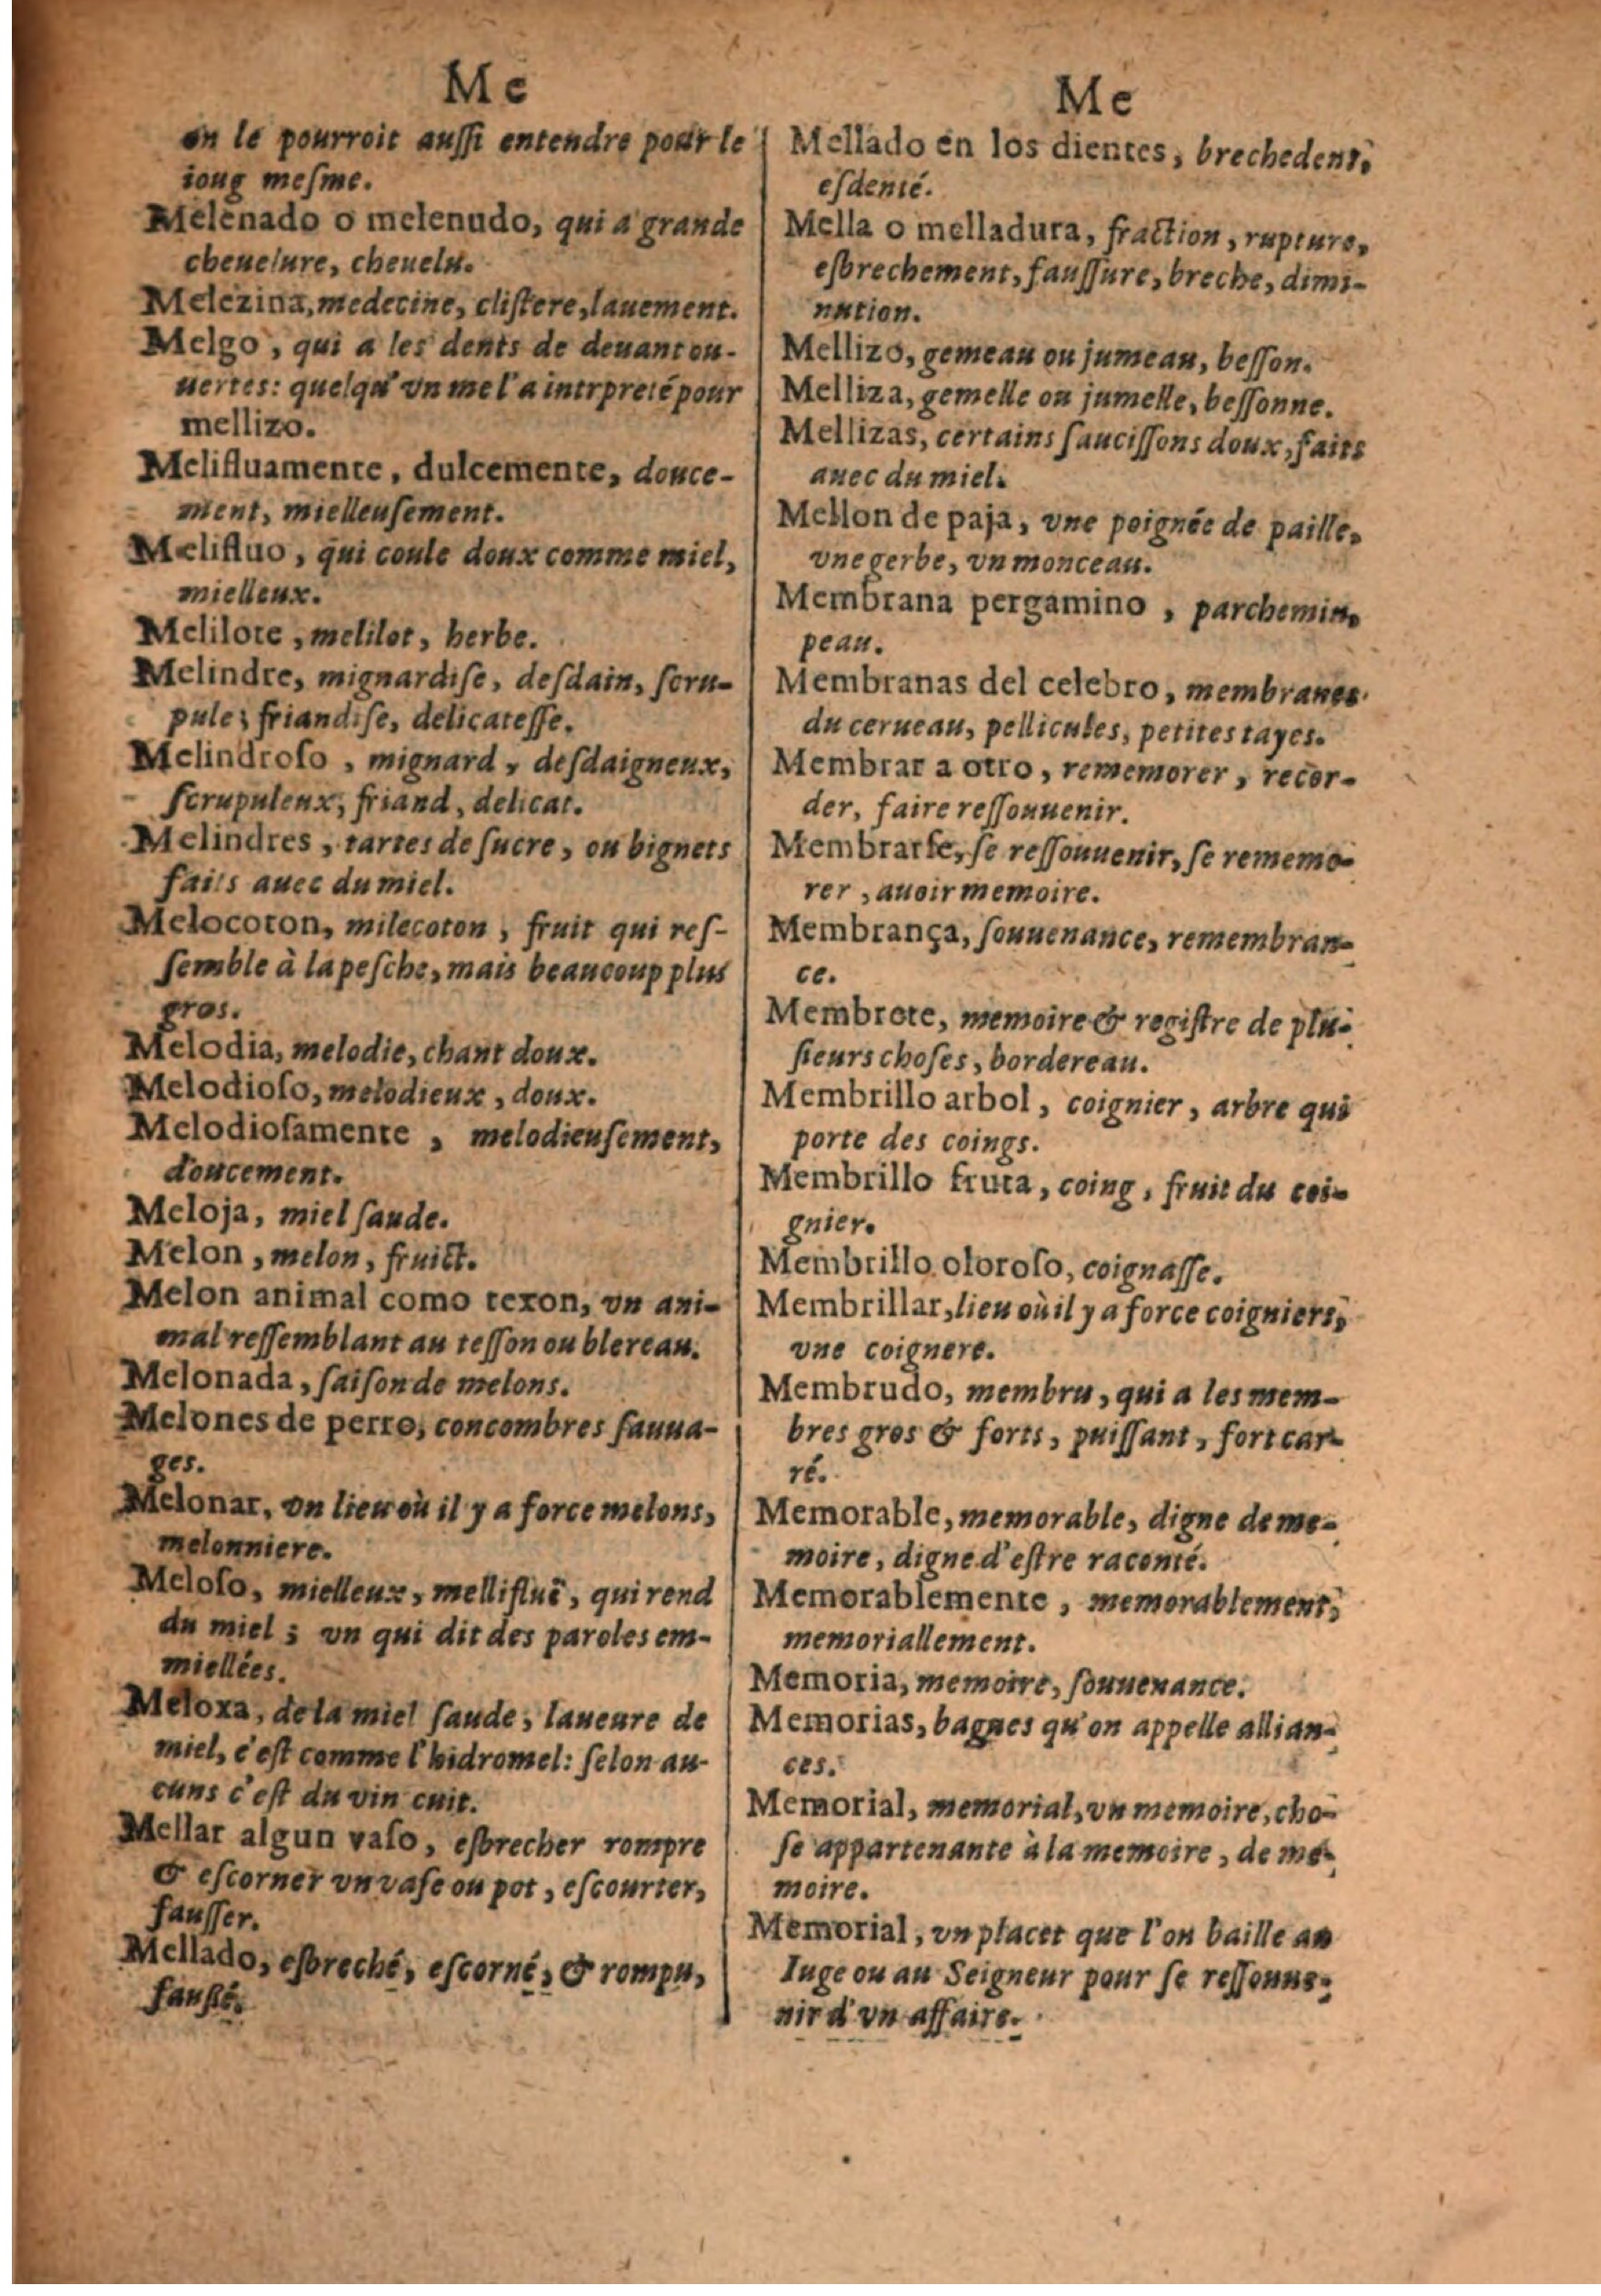 Me
on le pourroit auſſi entendre pour le
ioug meſme.
Melenado o melenudo, qui a grande
cheuelure, cheuelu.
Melezina, medecine, cliſtere, lauement.
Melgo, qui a les dents de deuant ou-
uertes: quelqu'vn me l'a intrpreté pour
mellizo.
Melifluamente, dulcemente, douce-
ment, mielleuſement.
Melifluo, qui coule doux comme miel,
mielleux.
Melilote, melilot, herbe.
Melindre, mignardiſe, deſdain, ſcru-
pule, friandiſe, delicateſſe.
Melindroſo, mignard, deſdaigneux,
ſcrupuleux, friand, delicat.
Melindres, tartes de ſucre, ou bignets
faits auec du miel.
Melocoton, milecoton, fruit qui reſ-
ſemble à la peſche, mais beaucoup plus
gros.
Melodia, melodie, chant doux.
Melodioſo, melodieux, doux.
Melodioſamente, melodieuſement,
doucement.
Meloja, miel ſaude.
Melon, melon, fruict.
Melon animal como texon, vn ani-
mal reſſemblant au teſſon ou blereau.
Melonada, ſaiſon de melons.
Melones de perro, concombres ſauua-
ges.
Melonar, vn lieu où il y a force melons,
melonniere.
Meloſo, mielleux, mellifluë, qui rend
du miel; vn qui dit des paroles em-
miellées.
Meloxa, de la miel ſaude, laueure de
miel, c'eſt comme l'hidromel: ſelon au-
cuns c'eſt du vin cuit.
Mellar algun vaſo, eſbrecher rompre
& eſcorner vn vaſe ou pot, eſcourter,
fauſſer.
Mellado, eſbreché, eſcorné, & rompu,
fauſſé.
Me
Mellado en los dientes, brechedent,
eſdenté.
Mella o melladura, fraction, rupture,
eſbrechement, fauſſure, breche, dimi-
nution.
Mellizo, gemeau ou jumeau, beſſon.
Melliza, gemelle ou jumelle, beſſonne.
Mellizas, certains ſauciſſons doux, faits
auec du miel.
Mellon de paja, vne poignée de paille,
vne gerbe, vn monceau.
Membrana pergamino, parchemin,
peau.
Membranas del celebro, membranes
du cerueau, pellicules, petites tayes.
Membrar a otro, rememorer, recor-
der, faire reſſouuenir.
Membrarſe, ſe reſſouuenir, ſe rememo-
rer, auoir memoire.
Membrança, ſouuenance, remembran-
ce.
Membrete, memoire & regiſtre de plu-
ſieurs choſes, bordereau.
Membrillo arbol, coignier, arbre qui
porte des coings.
Membrillo fruta, coing, fruit du coi-
gnier.
Membrillo oloroſo, coignaſſe.
Membrillar, lieu où il y a force coigniers,
vne coignere.
Membrudo, membru, qui a les mem-
bres gros & forts, puiſſant, fort car-
ré.
Memorable, memorable, digne de me-
moire, digne d'eſtre raconté.
Memorablemente, memorablement,
memoriallement.
Memoria, memoire, ſouuenance.
Memorias, bagues qu'on appelle allian-
ces.
Memorial, memorial, vn memoire, cho-
ſe appartenante à la memoire, de me-
moire.
Memorial, vn placet que l'on baille au
Iuge ou au Seigneur pour ſe reſſouue-
nir d'vn affaire.